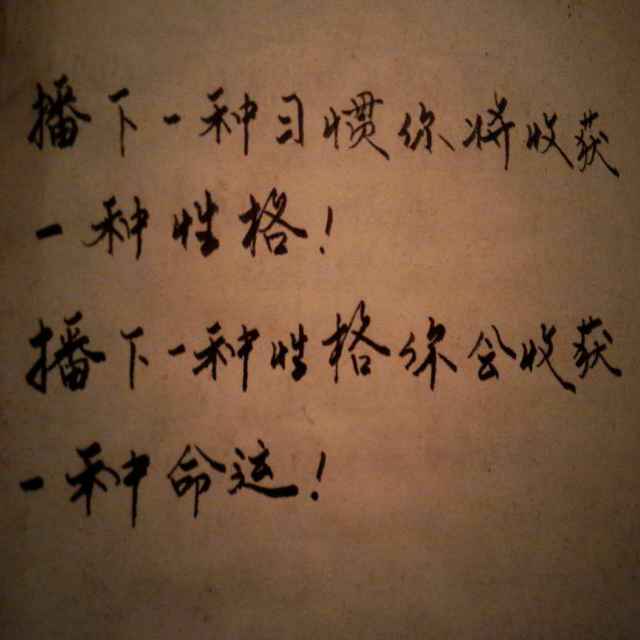 播下一种习惯你将收获
一种性格!
播下一种性格你会收获
一种命运!